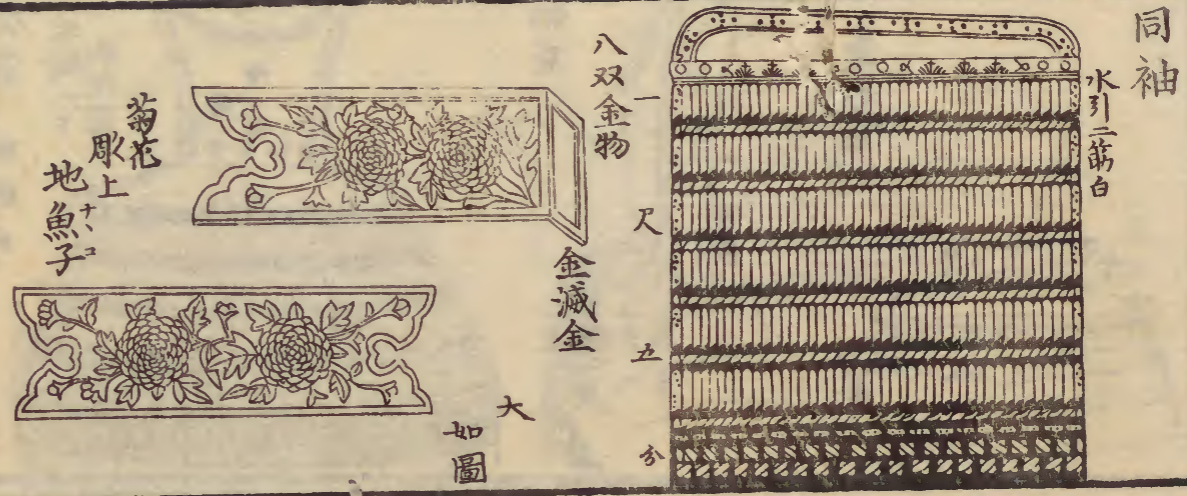 同袖
水引二筋白
一尺五分
八双金物
金滅金
大如圖
菊花
彫上
地魚子
ナヽコ